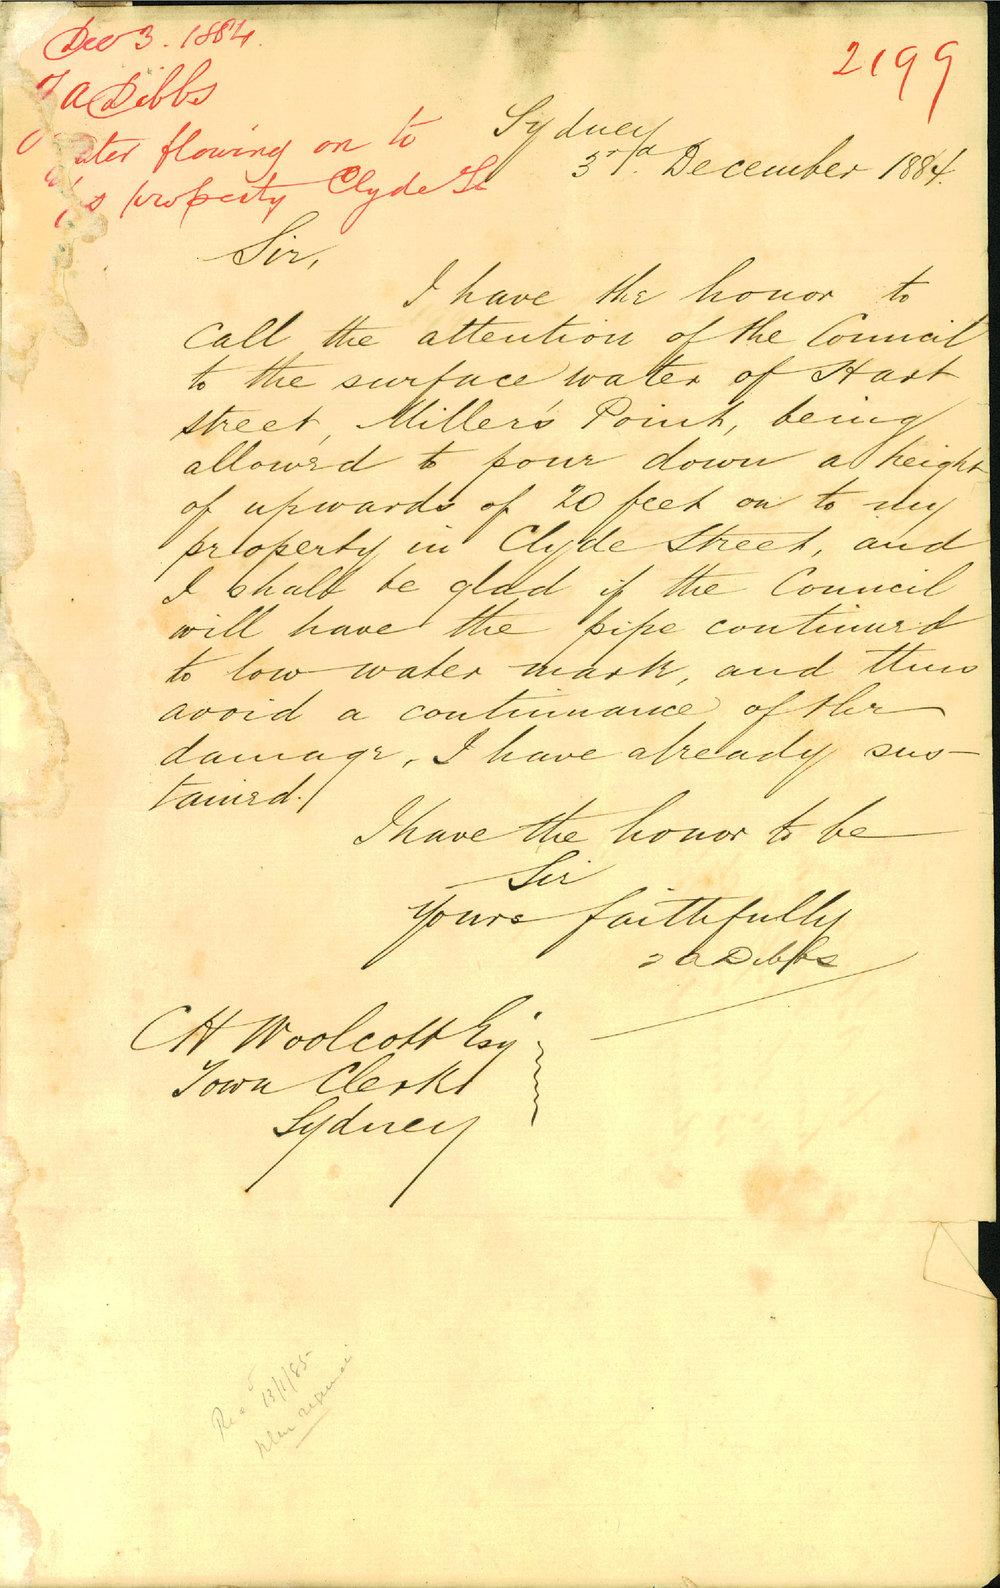 Dec 3. 1884.
2199
A Dibbs
ater flowing on to
his property Clyde St
Sydney
3rd. December 1884.
Sir,
I have the honor to
call the attention of the Council
to the surface water of Hart
street, Miller's Point, being
allowed to pour down a height
of upwards of 20 feet on to my
property in Clyde Street, and
I shall be glad if the Council
will have the pipe continued
to low water mark, and thus
avoid a continuance of the
damage, I have already sus-
tained.
I have the honor to be
Sir
Yours faithfully
A Dibbs
C H Woolcott Esq
Town Clerk
Sydney
13/1/85